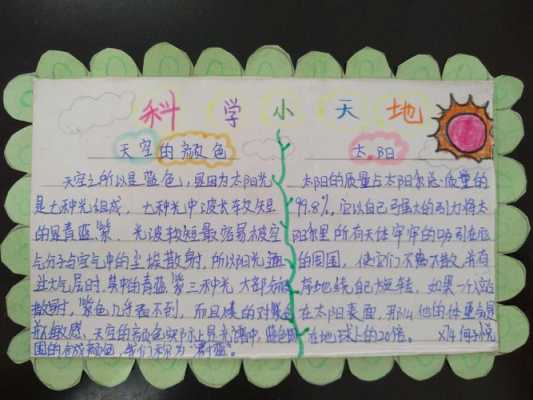 科学小天地
天空的颜色
天空之所以是蓝色,是因为太阳光
是七种光组成,七种光中波长较短
的是青蓝紫,光波较短最容易被空
气分子与空气中的尘埃散射,所以阳光
过大气层时,其中的青蓝紫三种光大部分
散射,紫色几乎看不到,而且
敏感,天空的颜色实际上是光谱中蓝色
国的合成颜色,我们称为"蔚蓝"。
太阳
太阳的质量占太阳系总质量的
99.8%,它以自己强大的引力将太
阳系里所有天体牢牢的吸引在它
的周围,使它们不离不散,井有
地绕自己旋转,如果一个人站
在太阳表面,那么他的体重是
在地球上的20倍。